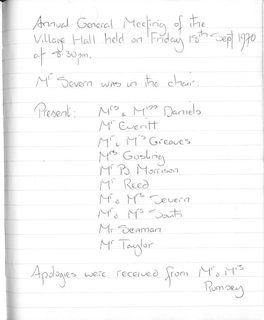 Annual General Meeting of the
Village Hall held on Friday 18th Sept 1970
at 8.30pm.
Mr Severn was in the chair.
Present: Mrs & Miss Daniels
Mr Everitt
Mr & Mrs Greaves
Mrs Gosling
Mr P Morrison
Mr Reed
Mr & Mrs Severn
Mr & Mrs South
Mr Seaman
Mr Taylor
Apologies were received from Mr & Mrs
Pumsey